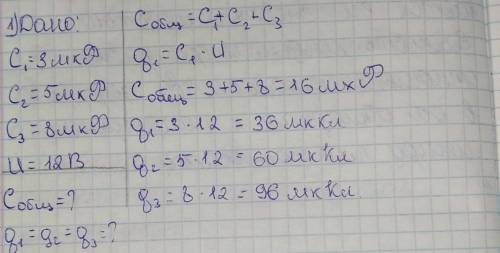 1) Дано:
C₁=3мкФ
C₂=5мкФ
C₃=8мкФ
U=12В
Cобщ=?
q₁=q₂=q₃=?
Cобщ=C₁+C₂+C₃
q₁=C₁·U
Cобщ=3+5+8=16мкФ
q₁=3·12=36мкКл
q₂=5·12=60мкКл
q₃=8·12=96мкКл